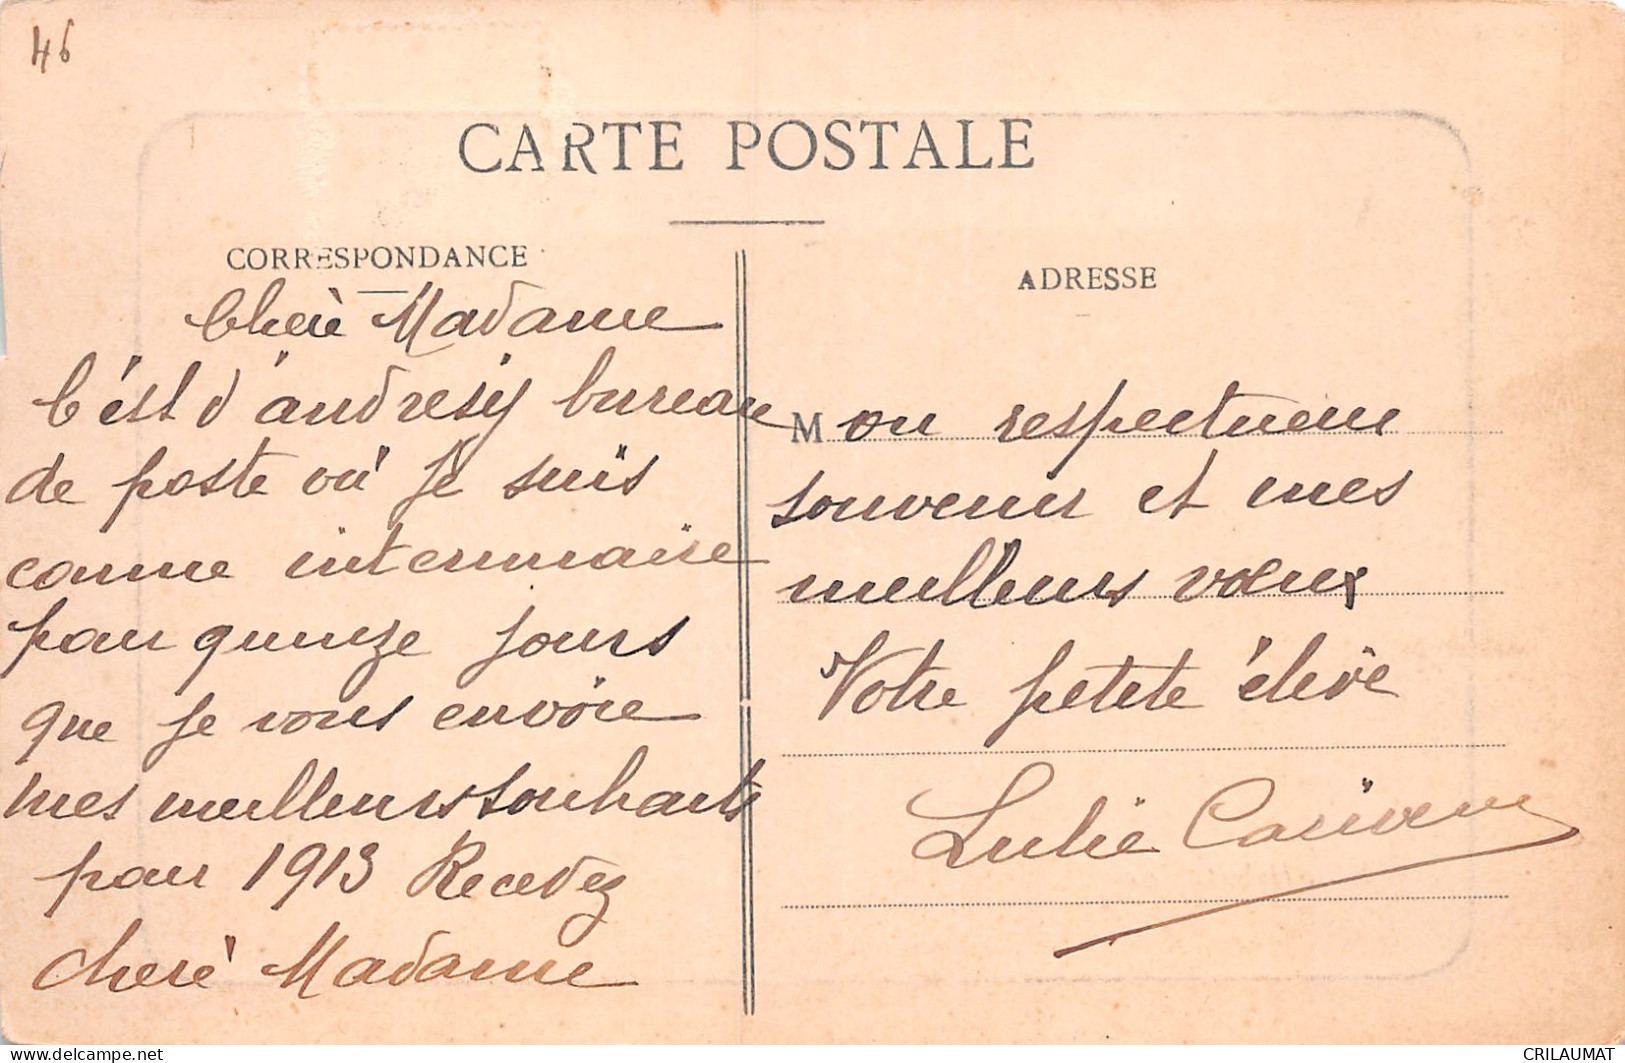 46
CARTE POSTALE
CORRESPONDANCE
ADRESSE
Cherè Madame
C'est d'andresÿ bureau
de poste où je suis
comme interimaire
pour quinze jours
que je vous envoie
mes meilleurs souhaits
pour 1913 Recevez
cherè Madame
Mon respectueux
souvenir et mes
meilleurs vœux
Votre petite élève
CRILAUMAT
delcampe.net